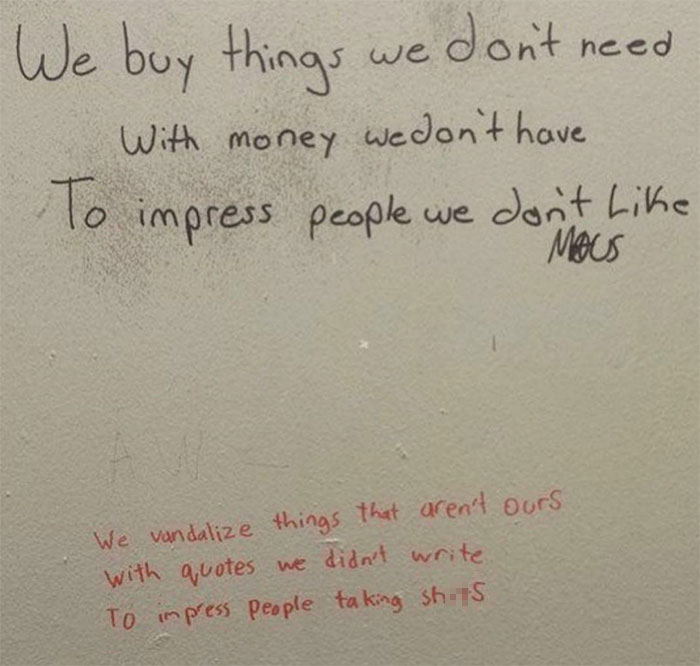 We buy things we don't need
With money we don't have
To impress people we don't Like
AW
We vandalize things that aren't ours
with quotes we didn't write
To impress people taking